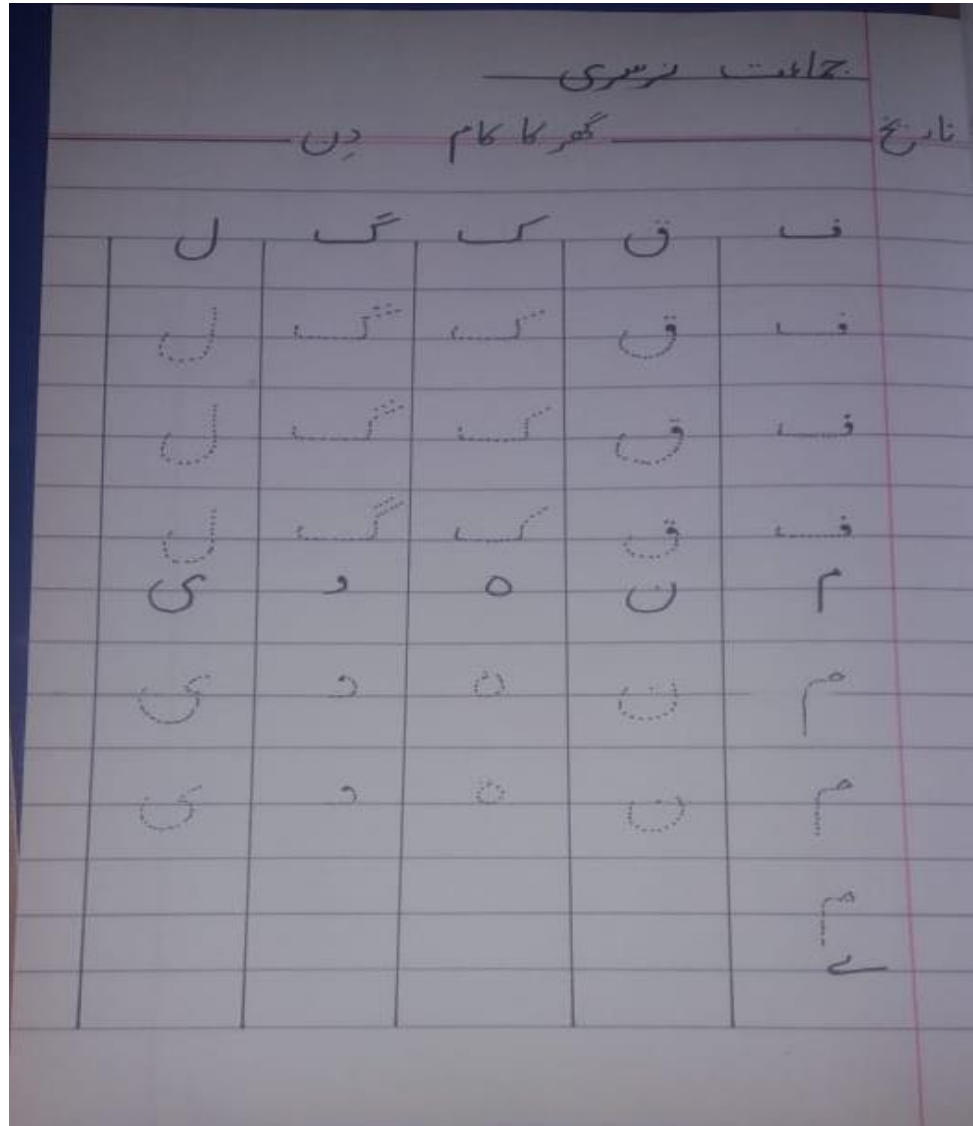 جماعت نرسری
تاریخ گھر کا کام دِن
ف ق ک گ ل
ف ق ک گ ل
ف ق ک گ ل
ف ق ک گ ل
م ن ہ و ی
م ن ہ و ی
م ن ہ و ی
م
ے